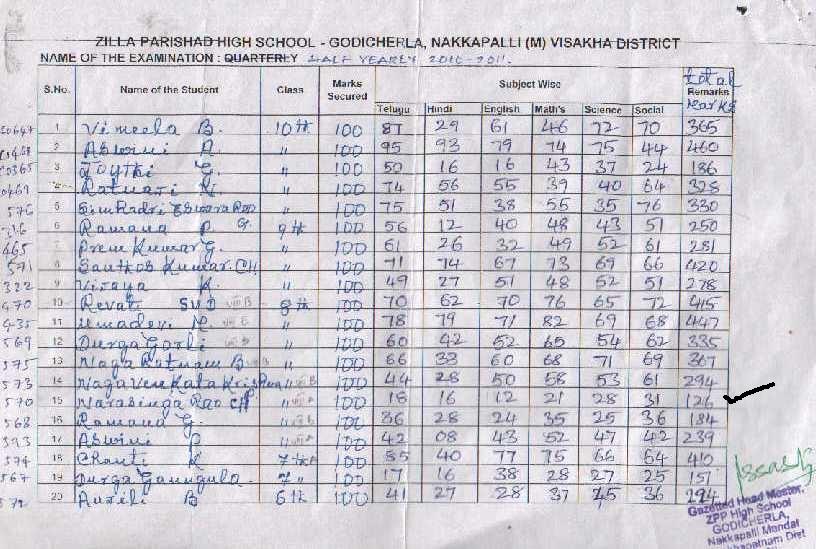 ZILLA PARISHAD HIGH SCHOOL - GODICHERLA, NAKKAPALLI (M) VISAKHA DISTRICT
NAME OF THE EXAMINATION : QUARTERLY HALF YEARLY 2010-2011.
S.No. Name of the Student Class Marks Secured Subject Wise total Remarks Marks
Telugu Hindi English Math's Science Social
1 Vimeela B. 10th 100 87 29 61 46 72 70 365
2 Aswini A. " 100 95 93 79 74 75 44 460
3 Joythi G. " 100 50 16 16 43 37 24 186
4 Ratnari K. " 100 74 56 55 39 40 64 328
576 5 Simhadri Eswara Rao " 100 75 51 38 55 35 76 330
6 Ramana P. G. 9th 100 56 12 40 48 43 51 250
465 7 Prem Kumar G. " 100 61 26 32 49 52 61 281
571 8 Santhos Kumar.CH " 100 71 74 67 73 69 66 420
322 9 Vijaya K. " 100 49 27 51 48 52 51 278
470 10 Revati SVD VIII B 8th 100 70 62 70 76 65 72 415
435 11 Umadevi M. VIII B " 100 78 79 71 82 69 68 447
569 12 Durga Gorli VIII B " 100 60 42 52 65 54 62 335
575 13 Naga Ratnam B. VIII B " 100 66 33 60 68 71 69 367
573 14 Naga Venkata Krishna " VIII B 100 44 28 50 58 53 61 294
570 15 Narasinga Rao CH " VIII A 100 18 16 12 21 28 31 126
568 16 Ramana G. " VIII A 100 36 28 24 35 25 36 184
393 17 Aswini P " VII A 100 42 08 43 52 47 42 239
574 18 Chanti K 7th A 100 85 40 77 75 66 64 410
567 19 Durga Ganngula 7 " 100 17 16 38 28 27 25 151
572 20 B 6th 100 41 27 28 37 45 36
Gazetted Head Master,
ZPP High School
GODICHERLA,
Nakkapalli Mandal
Dist